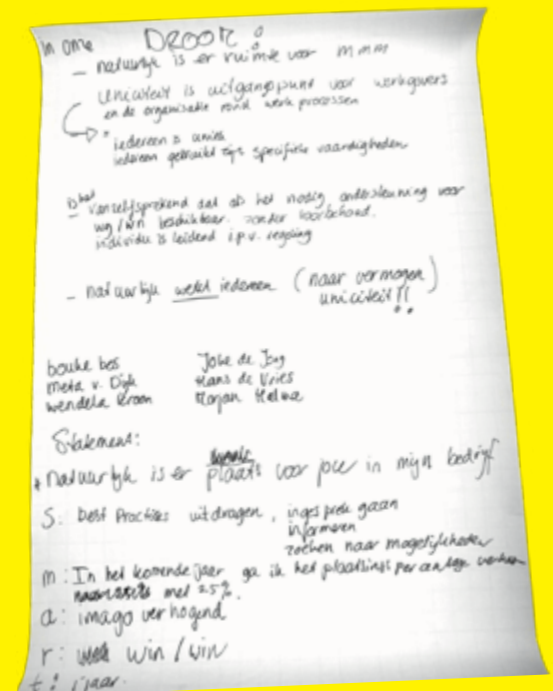 In onze DROOM:
- natuurlijk is er ruimte voor mmm
Uniciteit is uitgangspunt voor werkgevers
en de organisatie rond werk processen
* iedereen is uniek
iedereen gebruikt zijn specifieke vaardigheden
- het
Vanzelfsprekend dat als het nodig ondersteuning voor
wg/wn beschikbaar. zonder voorbehoud.
individu is leidend i.p.v. regeling
- natuurlijk werkt iedereen (naar vermogen)
uniciteit!!
bouke bos Joke de Jong
meta v. Dijk Hans de Vries
wendela kroon Marjan
Statement:
* natuurlijk is er plaats voor jou in mijn bedrijf
S: best Practises uitdragen, in gesprek gaan
informeren
zoeken naar mogelijkheden
m: In het komende jaar ga ik het plaatsings percentage
met 25%.
a: imago verhogend
r: win/win
t: 1 jaar.